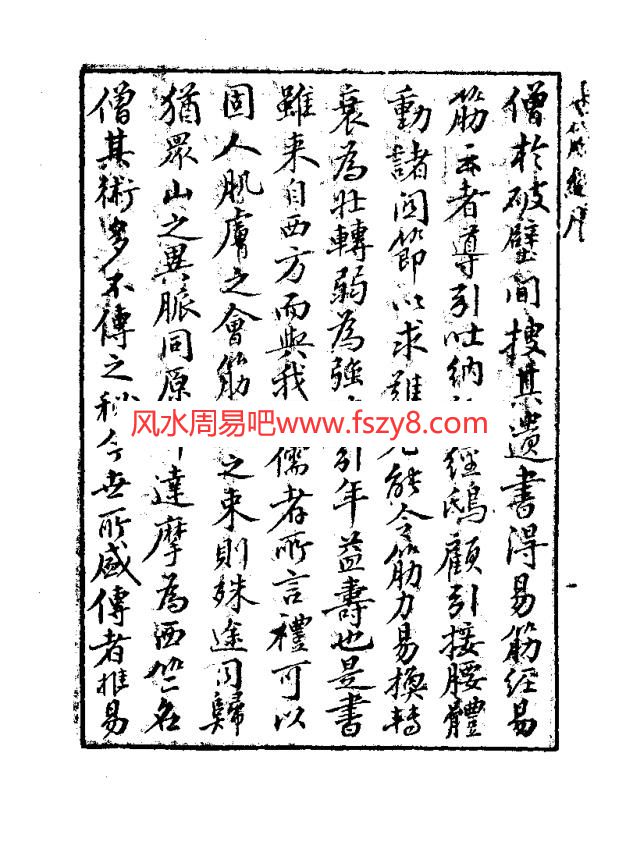 僧於破壁間搜其遺書得易筋經易
筋云者導引吐納 經鴟顧引接腰體
動諸関節以求難 能令筋力易換轉
衰為壮轉弱為強 引年益壽也是書
雖来自西方而與我 儒者所言禮可以
固人肌膚之會筋 之束則殊途同歸
猶眾山之異脈同原 達摩為西竺名
僧其術多不傳之秘今世所盛傳者推易
风水周易吧www.fszy8.com